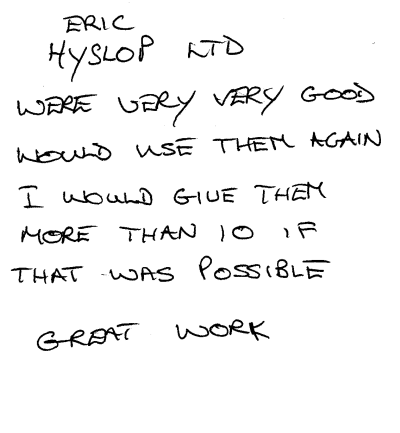 ERIC
HYSLOP LTD
WERE VERY VERY GOOD
WOULD USE THEM AGAIN
I WOULD GIVE THEM
MORE THAN 10 IF
THAT WAS POSSIBLE
GREAT WORK